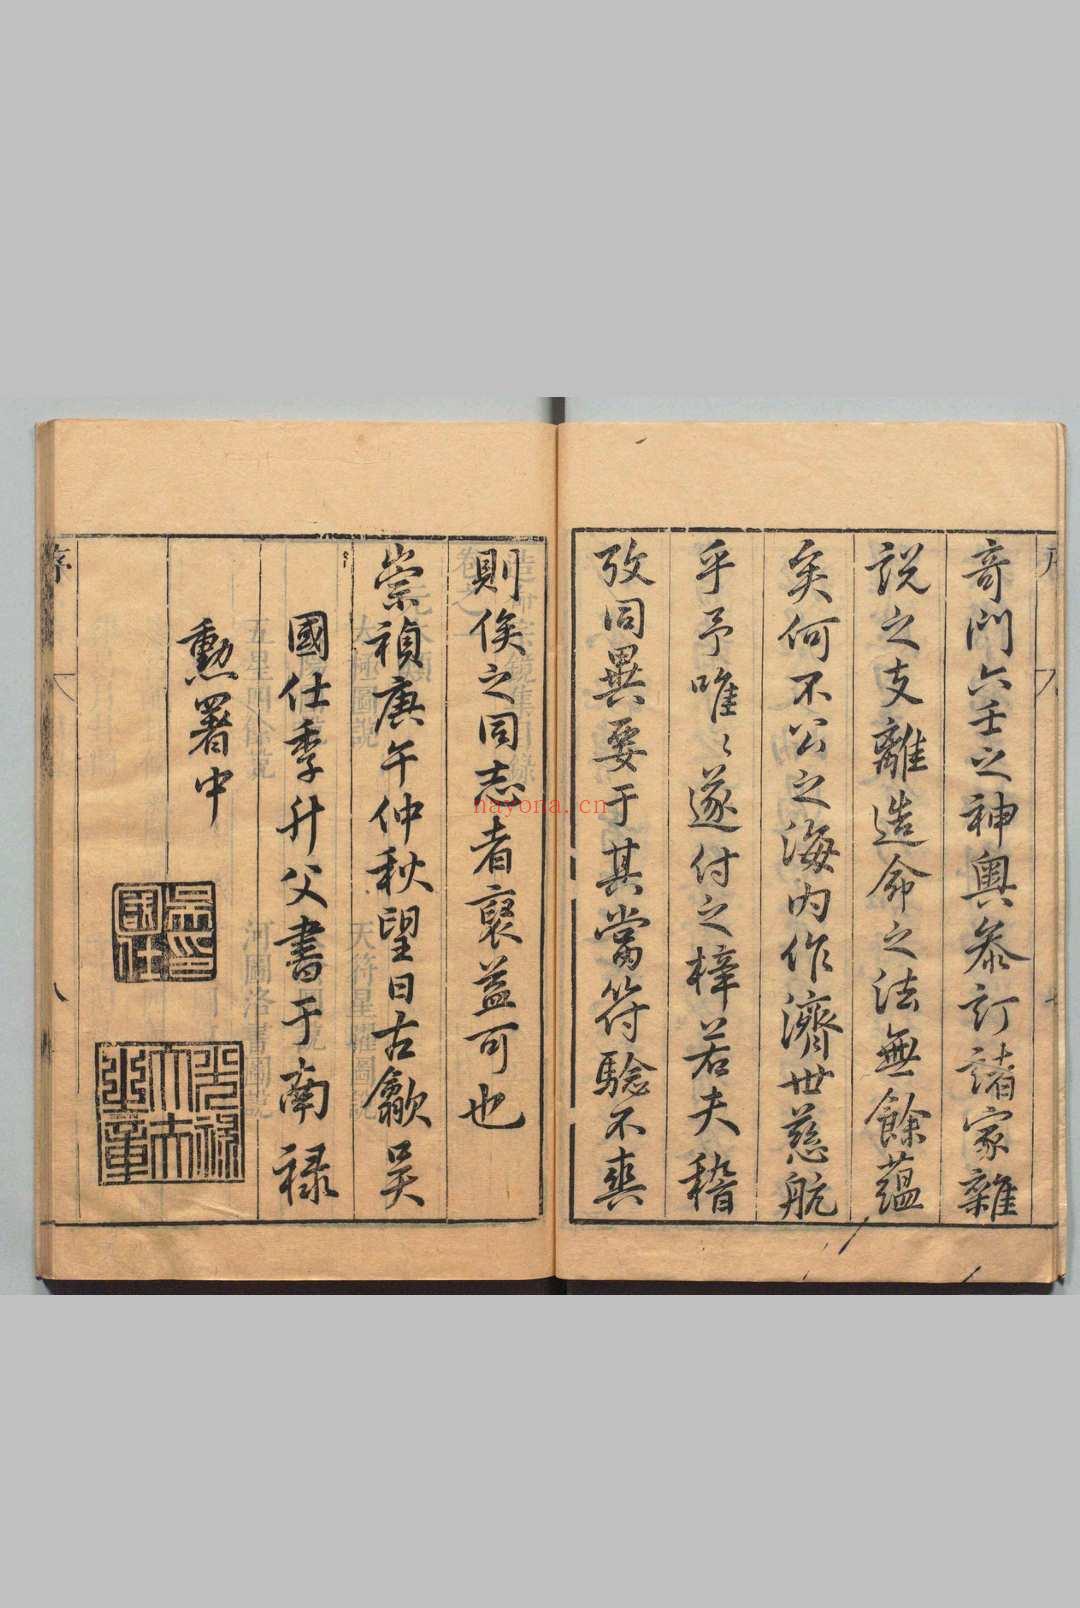 奇門六壬之神奧叅訂諸家雜
說之支離造命之法無餘蘊
矣何不公之海內作濟世慈航
乎予唯〻遂付之梓若夫稽
攷同異要于其當符驗不爽
則俟之同志者裒益可也
崇禎庚午仲秋望日古歙吳
國仕季升父書于南祿
勲署中
吳國仕印
序
nayona.cn